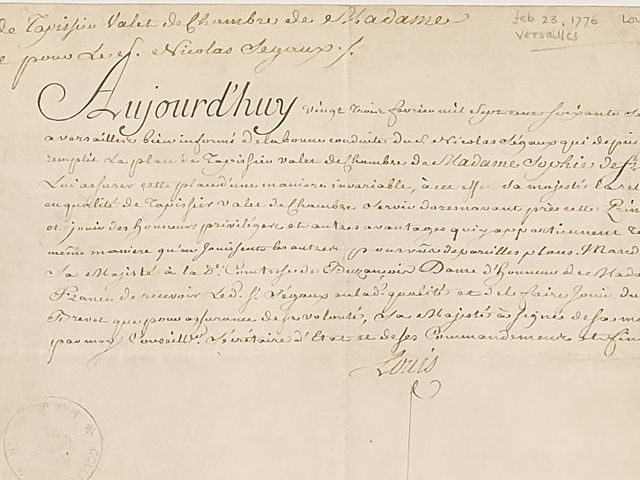 de Tapissier Valet de Chambre de Madame
feb 23, 1776
Versailles
Lou
e pour Le S. Nicolas Segaux ./.
Aujourd'huy vingt trois fevrier mil Sept cent soixante se
a versailles bien informé de la bonne conduite du S. Nicolas Ségaux qui depui
remplit La place de Tapissier Valet de Chambre de Madame Sophie de Fr
Lui assurer cette place d'une maniere invariable, à cet effet Sa majesté la re
en qualité de Tapissier Valet de Chambre Servir dorenavant près cette Prin
et jouir des honneurs privileges et autres avantages qui y appartiennent
même maniere qu'en Jouissent les autres pourvûs de pareilles places. Mand
Sa Majesté à la De. Comtesse de Dame d'honneur de Mada
France de recevoir Led. S. Ségaux qualité et de le faire Jouir du
Brevet que pour assurance de sa volonté, Sa Majesté à Signé de sa ma
par moy Conseiller Sécrétaire d'Etat et de ses Commandemens et fin
Louis